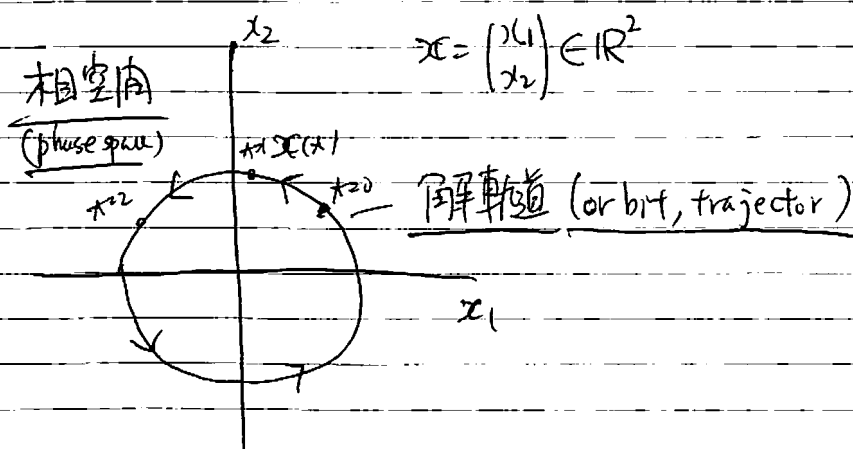 x₂
x = (x₁ x₂) ∈ ℝ²
相空間
(phase space)
t=1 x(t)
t=0
t=2
解軌道 (orbit, trajector)
x₁